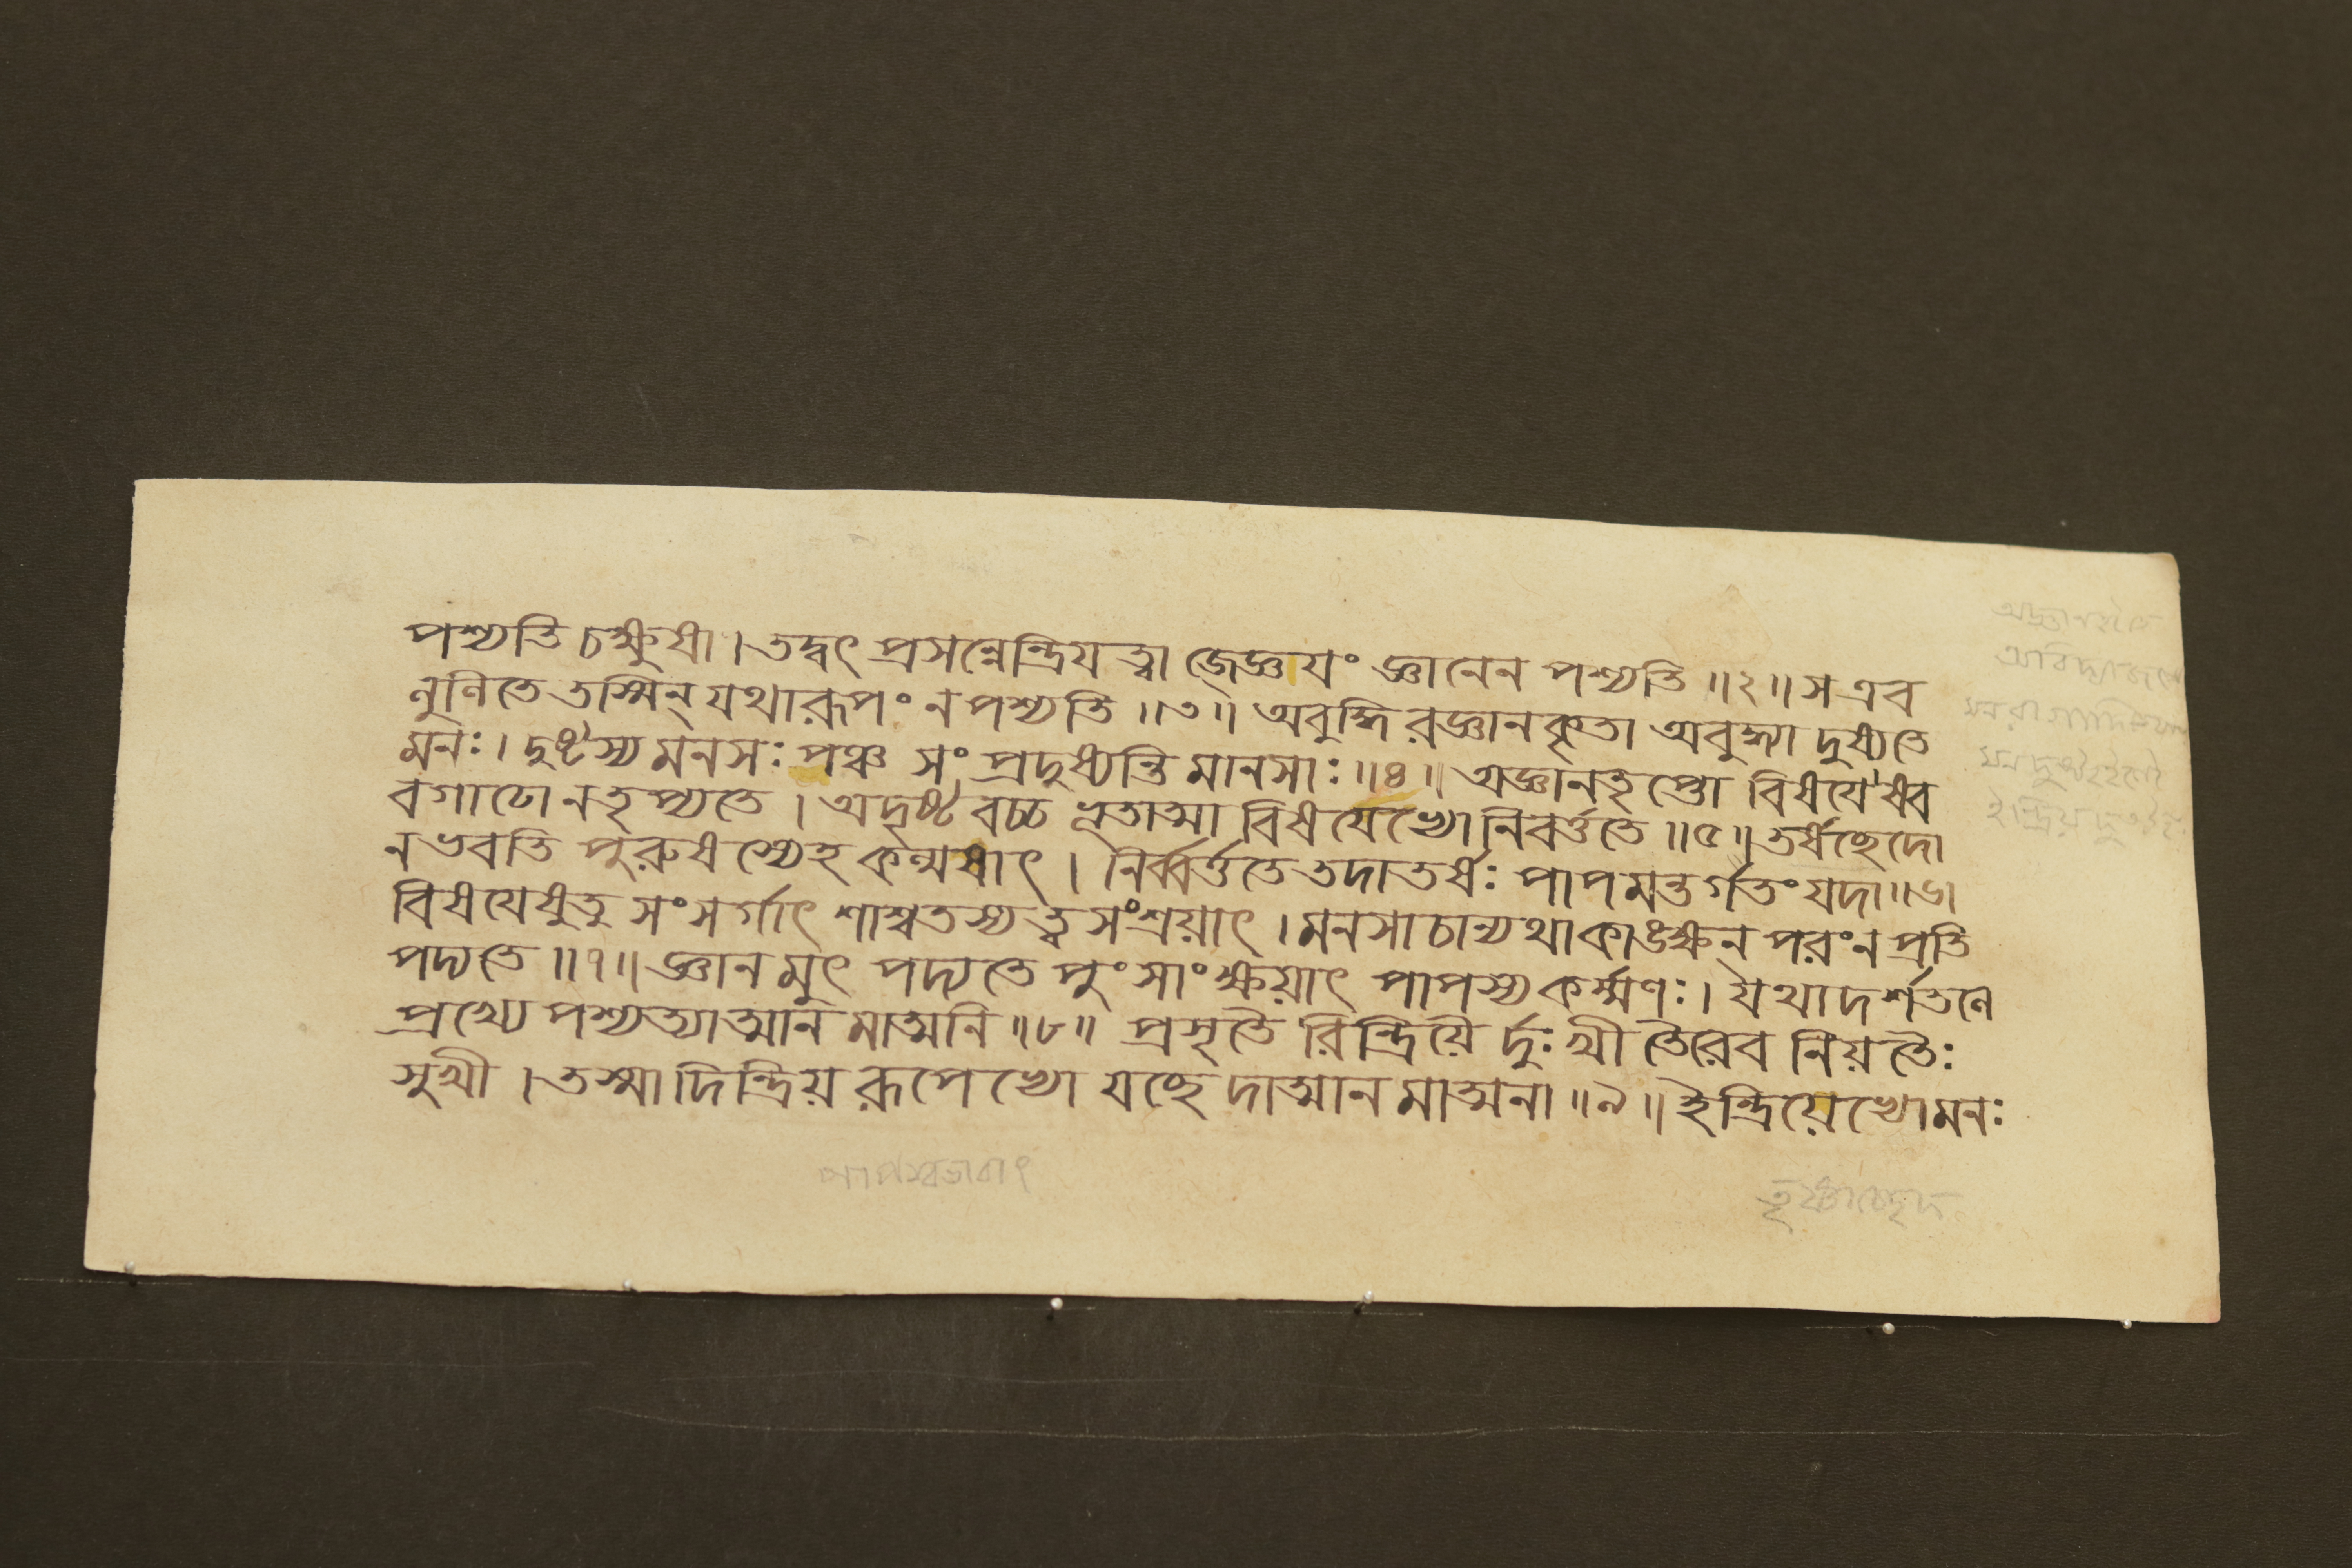 পশ্যতি চক্ষুষা । তদ্বৎ প্রসন্নেন্দ্রিযত্বা জ্জ্ঞেযং জ্ঞানেন পশ্যতি ॥২॥ স এব
লুণিতে তস্মিন্ যথারূপং ন পশ্যতি ॥৩॥ অবুদ্ধি রজ্ঞানকৃতা অবুদ্ধ্যা দুষ্যতে
মনঃ । দুষ্টস্য মনসঃ পঞ্চ সং প্রদুষ্যন্তি মানসাঃ ॥৪॥ অজ্ঞানতৃপ্তো বিষযেষ্বব
বগাঢো ন তৃপ্যতে । অদৃষ্টবচ্চ ভূতাত্মা বিষযেভ্যো নিবর্ত্ততে ॥৫॥ তর্ষচ্ছেদো
ন ভবতি পুরুষস্যেহ কল্মষাৎ । নির্ব্বর্ত্ততে তদা তর্ষঃ পাপমন্তর্গতং যদা ॥৬॥
বিষযেষু তু সংসর্গাৎ শাশ্বতস্য তু সংশ্রয়াৎ । মনসা চান্যথা কাঙক্ষন পরং ন প্রতি
পদ্যতে ॥৭॥ জ্ঞান মুৎ পদ্যতে পুংসাং ক্ষয়াৎ পাপস্য কর্ম্মণঃ । যথাদর্শতলে
প্রখ্যে পশ্যত্যাত্মান মাত্মনি ॥৮॥ প্রসৃতৈ রিন্দ্রিয়ৈ র্দুঃখী তৈরেব নিয়তৈঃ
সুখী । তস্মাদিন্দ্রিয়রূপেভ্যো যচ্ছেদাত্মান মাত্মনা ॥৯॥ ইন্দ্রিয়েভ্যো মনঃ